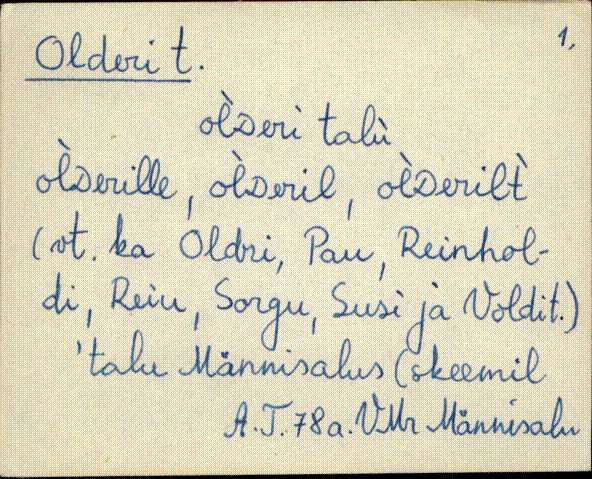 1.
Olderi t.
òl̀deri talù
òl̀derille, òl̀deril, òl̀derilt̀
(vt. ka Oldri, Pau, Reinhol-
di, Reiu, Sorgu, Susi jà Voldit.)
'talu Männisalus (skeemil
A.T. 78a. VMr Männisalu